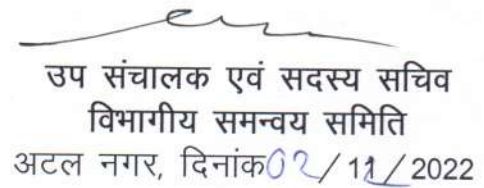 उप संचालक एवं सदस्य सचिव
विभागीय समन्वय समिति
अटल नगर, दिनांक 02/11/2022